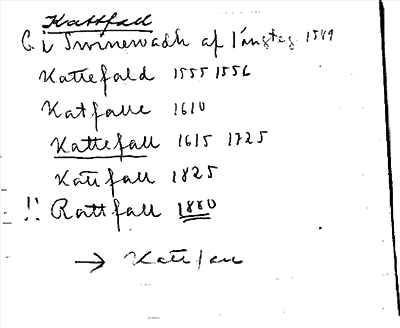 Kattfall
C i Svinevadh af
Kattefald 1555 1556
Katfalle 1610
Kattefall 1615 1725
Kattfall 1825
!! Rattfall 1880
→ Kattfall